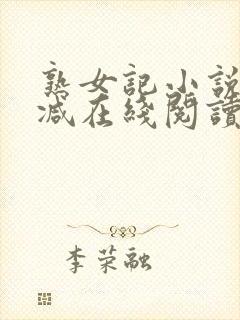 熟女記小説
减在綫閱讀
李荣融